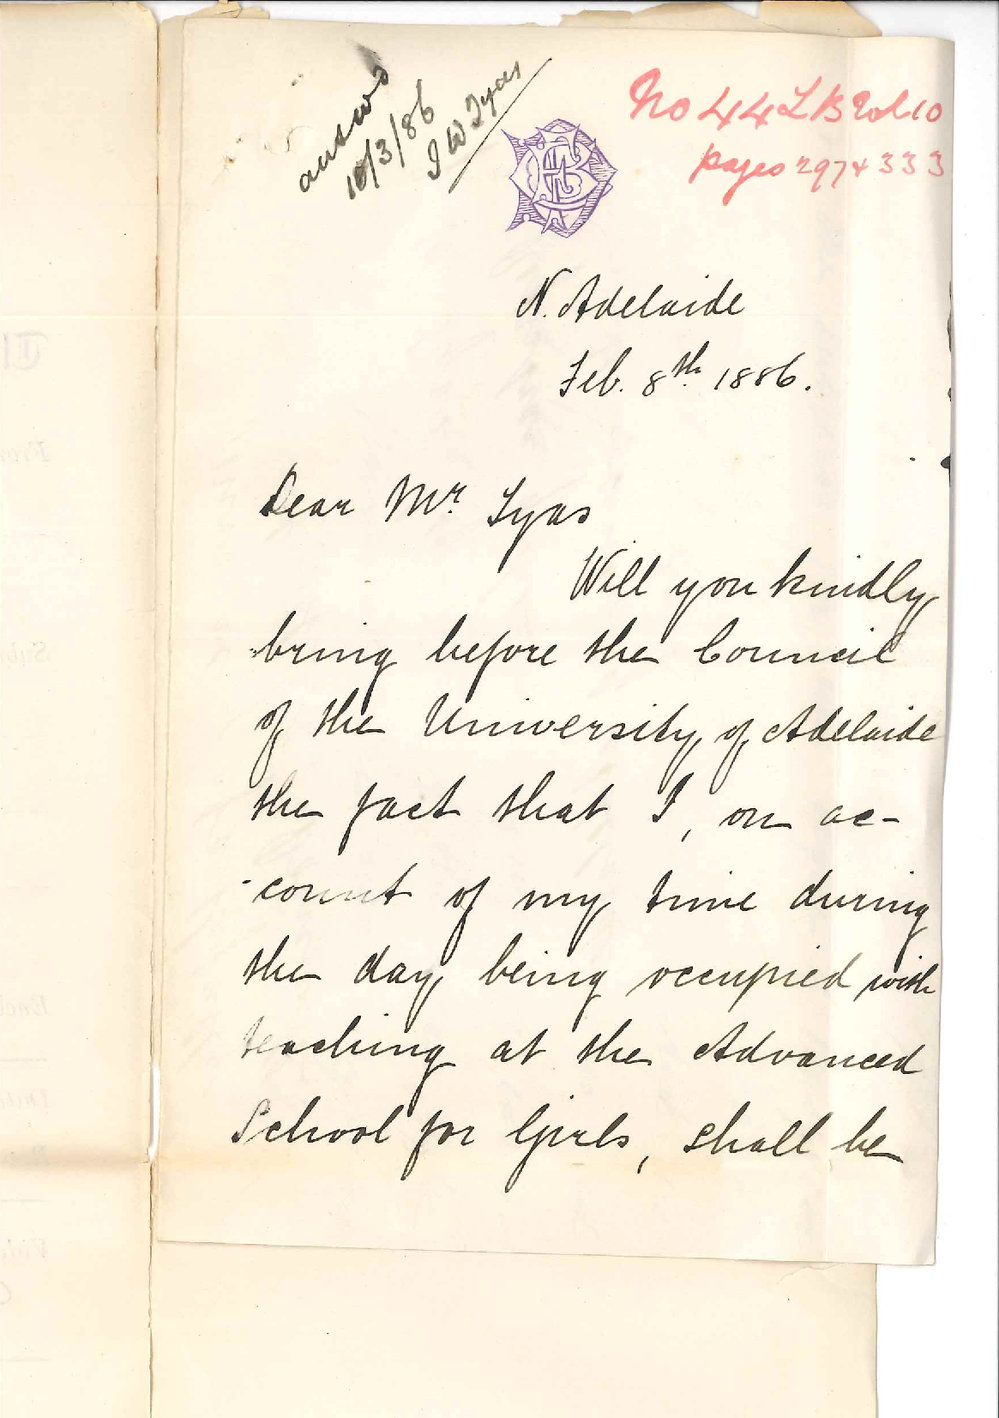 answd
10/3/86
J W Tyas
No 44 LB Vol 10
pages 297 & 333
N. Adelaide
Feb. 8th 1886.
Dear Mr. Tyas
Will you kindly
bring before the Council
of the University of Adelaide
the fact that I, on ac-
-count of my time during
the day being occupied with
teaching at the Advanced
School for Girls, shall be